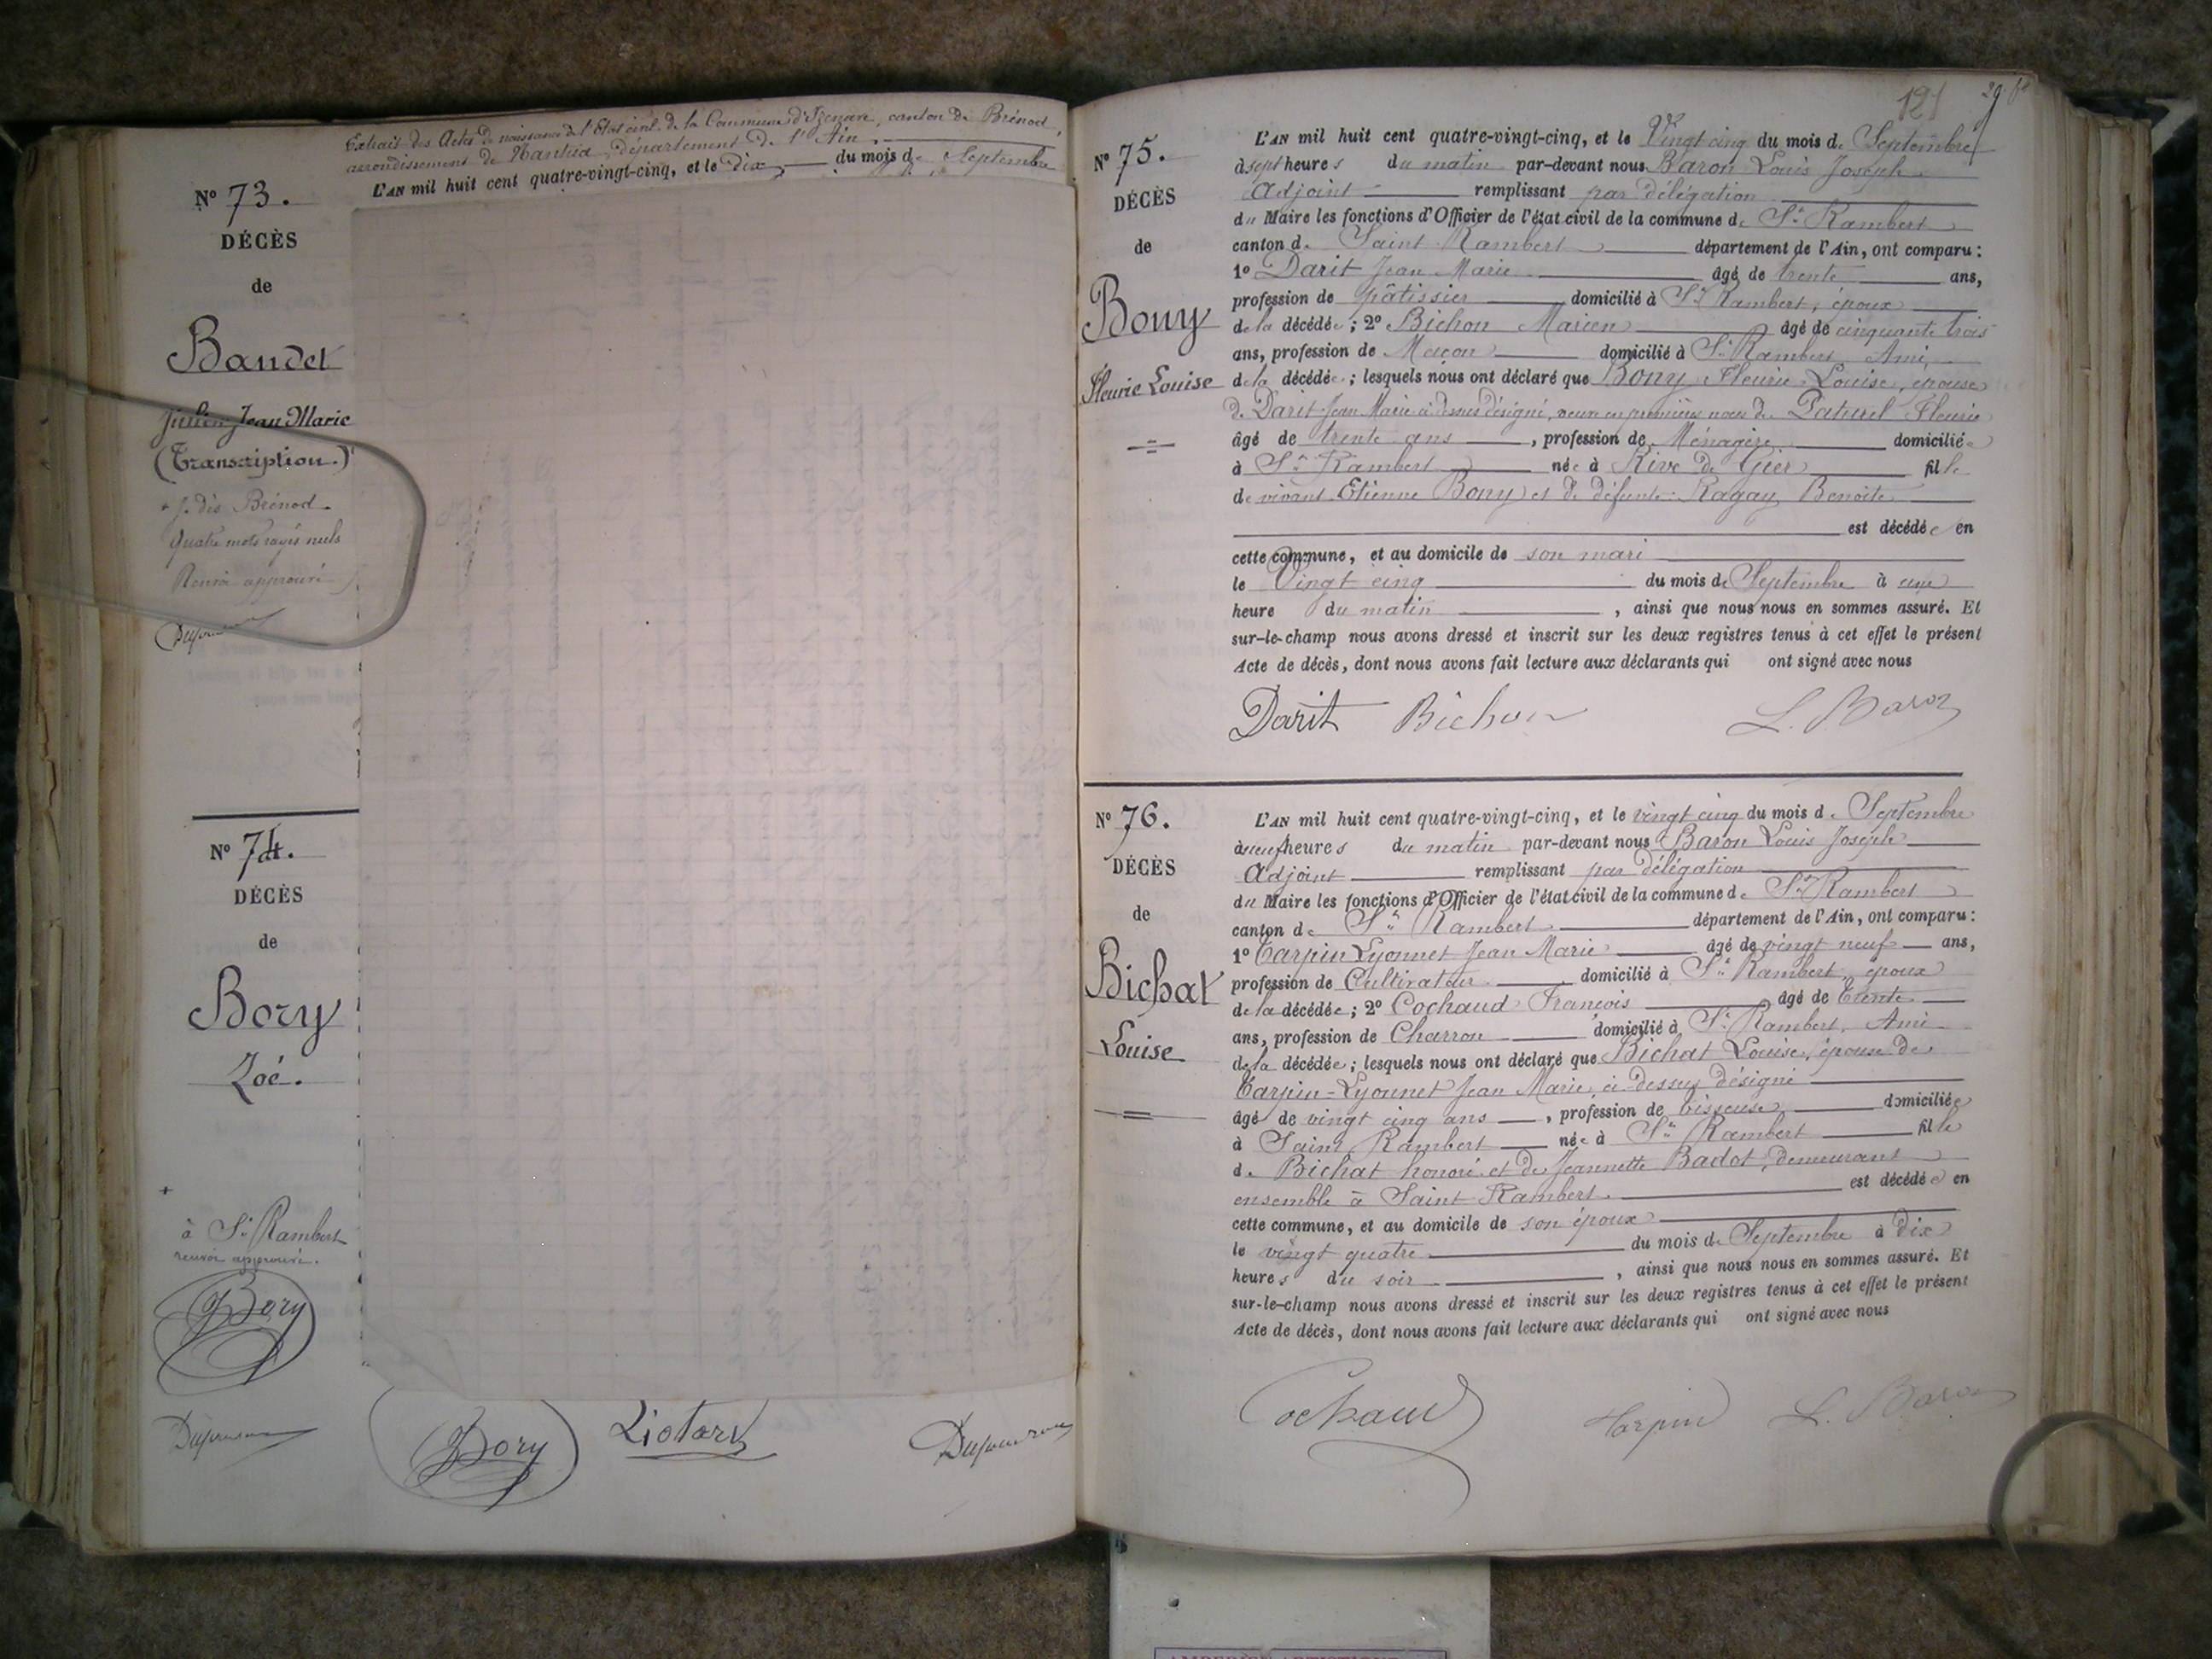 Extrait des Actes de naissance de l'État civil de la Commune d'Izenave, canton de Brénod,
arrondissement de Nantua, département de l'Ain.
L'AN mil huit cent quatre-vingt-cinq, et le dix du mois de Septembre
N° 73.
DÉCÈS
de
Baudet
Julien Jean Marie
(Transcription.)
Brénod
Quatre mots rayés nuls
Renvoi approuvé
N° 74.
DÉCÈS
de
Bory
Zoé.
+
à St Rambert
renvoi approuvé.
Bory
Bory Liotard
121
29
N° 75.
DÉCÈS
de
Bony
Fleurie Louise
L'AN mil huit cent quatre-vingt-cinq, et le Vingt cinq du mois de Septembre
à sept heures du matin par-devant nous Baron Louis Joseph
Adjoint remplissant par délégation
du Maire les fonctions d'Officier de l'état civil de la commune de St Rambert
canton de Saint Rambert département de l'Ain, ont comparu :
1° Darit Jean Marie âgé de trente ans,
profession de pâtissier domicilié à St Rambert, époux
de la décédée ; 2° Bichon Marien âgé de cinquante trois
ans, profession de Maçon domicilié à St Rambert, Ami,
de la décédée ; lesquels nous ont déclaré que Bony Fleurie Louise, épouse
de Darit Jean Marie ci dessus désigné, veuve en premières noces de Paturel Fleurie
âgé de trente ans, profession de Ménagère domiciliée
à St Rambert née à Rive de Gier fille
de vivant Etienne Bony et de défunte Ragay Benoite
est décédée en
cette commune, et au domicile de son mari
le Vingt cinq du mois de Septembre à une
heure du matin, ainsi que nous nous en sommes assuré. Et
sur-le-champ nous avons dressé et inscrit sur les deux registres tenus à cet effet le présent
Acte de décès, dont nous avons fait lecture aux déclarants qui ont signé avec nous
Darit Bichon L. Baron
N° 76.
DÉCÈS
de
Bichat
Louise
L'AN mil huit cent quatre-vingt-cinq, et le vingt cinq du mois de Septembre
à neuf heures du matin par-devant nous Baron Louis Joseph
Adjoint remplissant par délégation
du Maire les fonctions d'Officier de l'état civil de la commune de St Rambert
canton de St Rambert département de l'Ain, ont comparu :
1° Carpin Lyonnet Jean Marie âgé de vingt neuf ans,
profession de Cultivateur domicilié à St Rambert, époux
de la décédée ; 2° Cochaud François âgé de trente
ans, profession de Charron domicilié à St Rambert, Ami
de la décédée ; lesquels nous ont déclaré que Bichat Louise, épouse de
Carpin-Lyonnet Jean Marie, ci-dessus désigné
âgé de vingt cinq ans, profession de tisseuse domiciliée
à Saint Rambert née à St Rambert fille
de Bichat honoré et de Jeannette Badot, demeurant
ensemble à Saint Rambert. est décédée en
cette commune, et au domicile de son époux
le vingt quatre du mois de Septembre à dix
heures du soir, ainsi que nous nous en sommes assuré. Et
sur-le-champ nous avons dressé et inscrit sur les deux registres tenus à cet effet le présent
Acte de décès, dont nous avons fait lecture aux déclarants qui ont signé avec nous
Cochaud Tarpin L. Baron